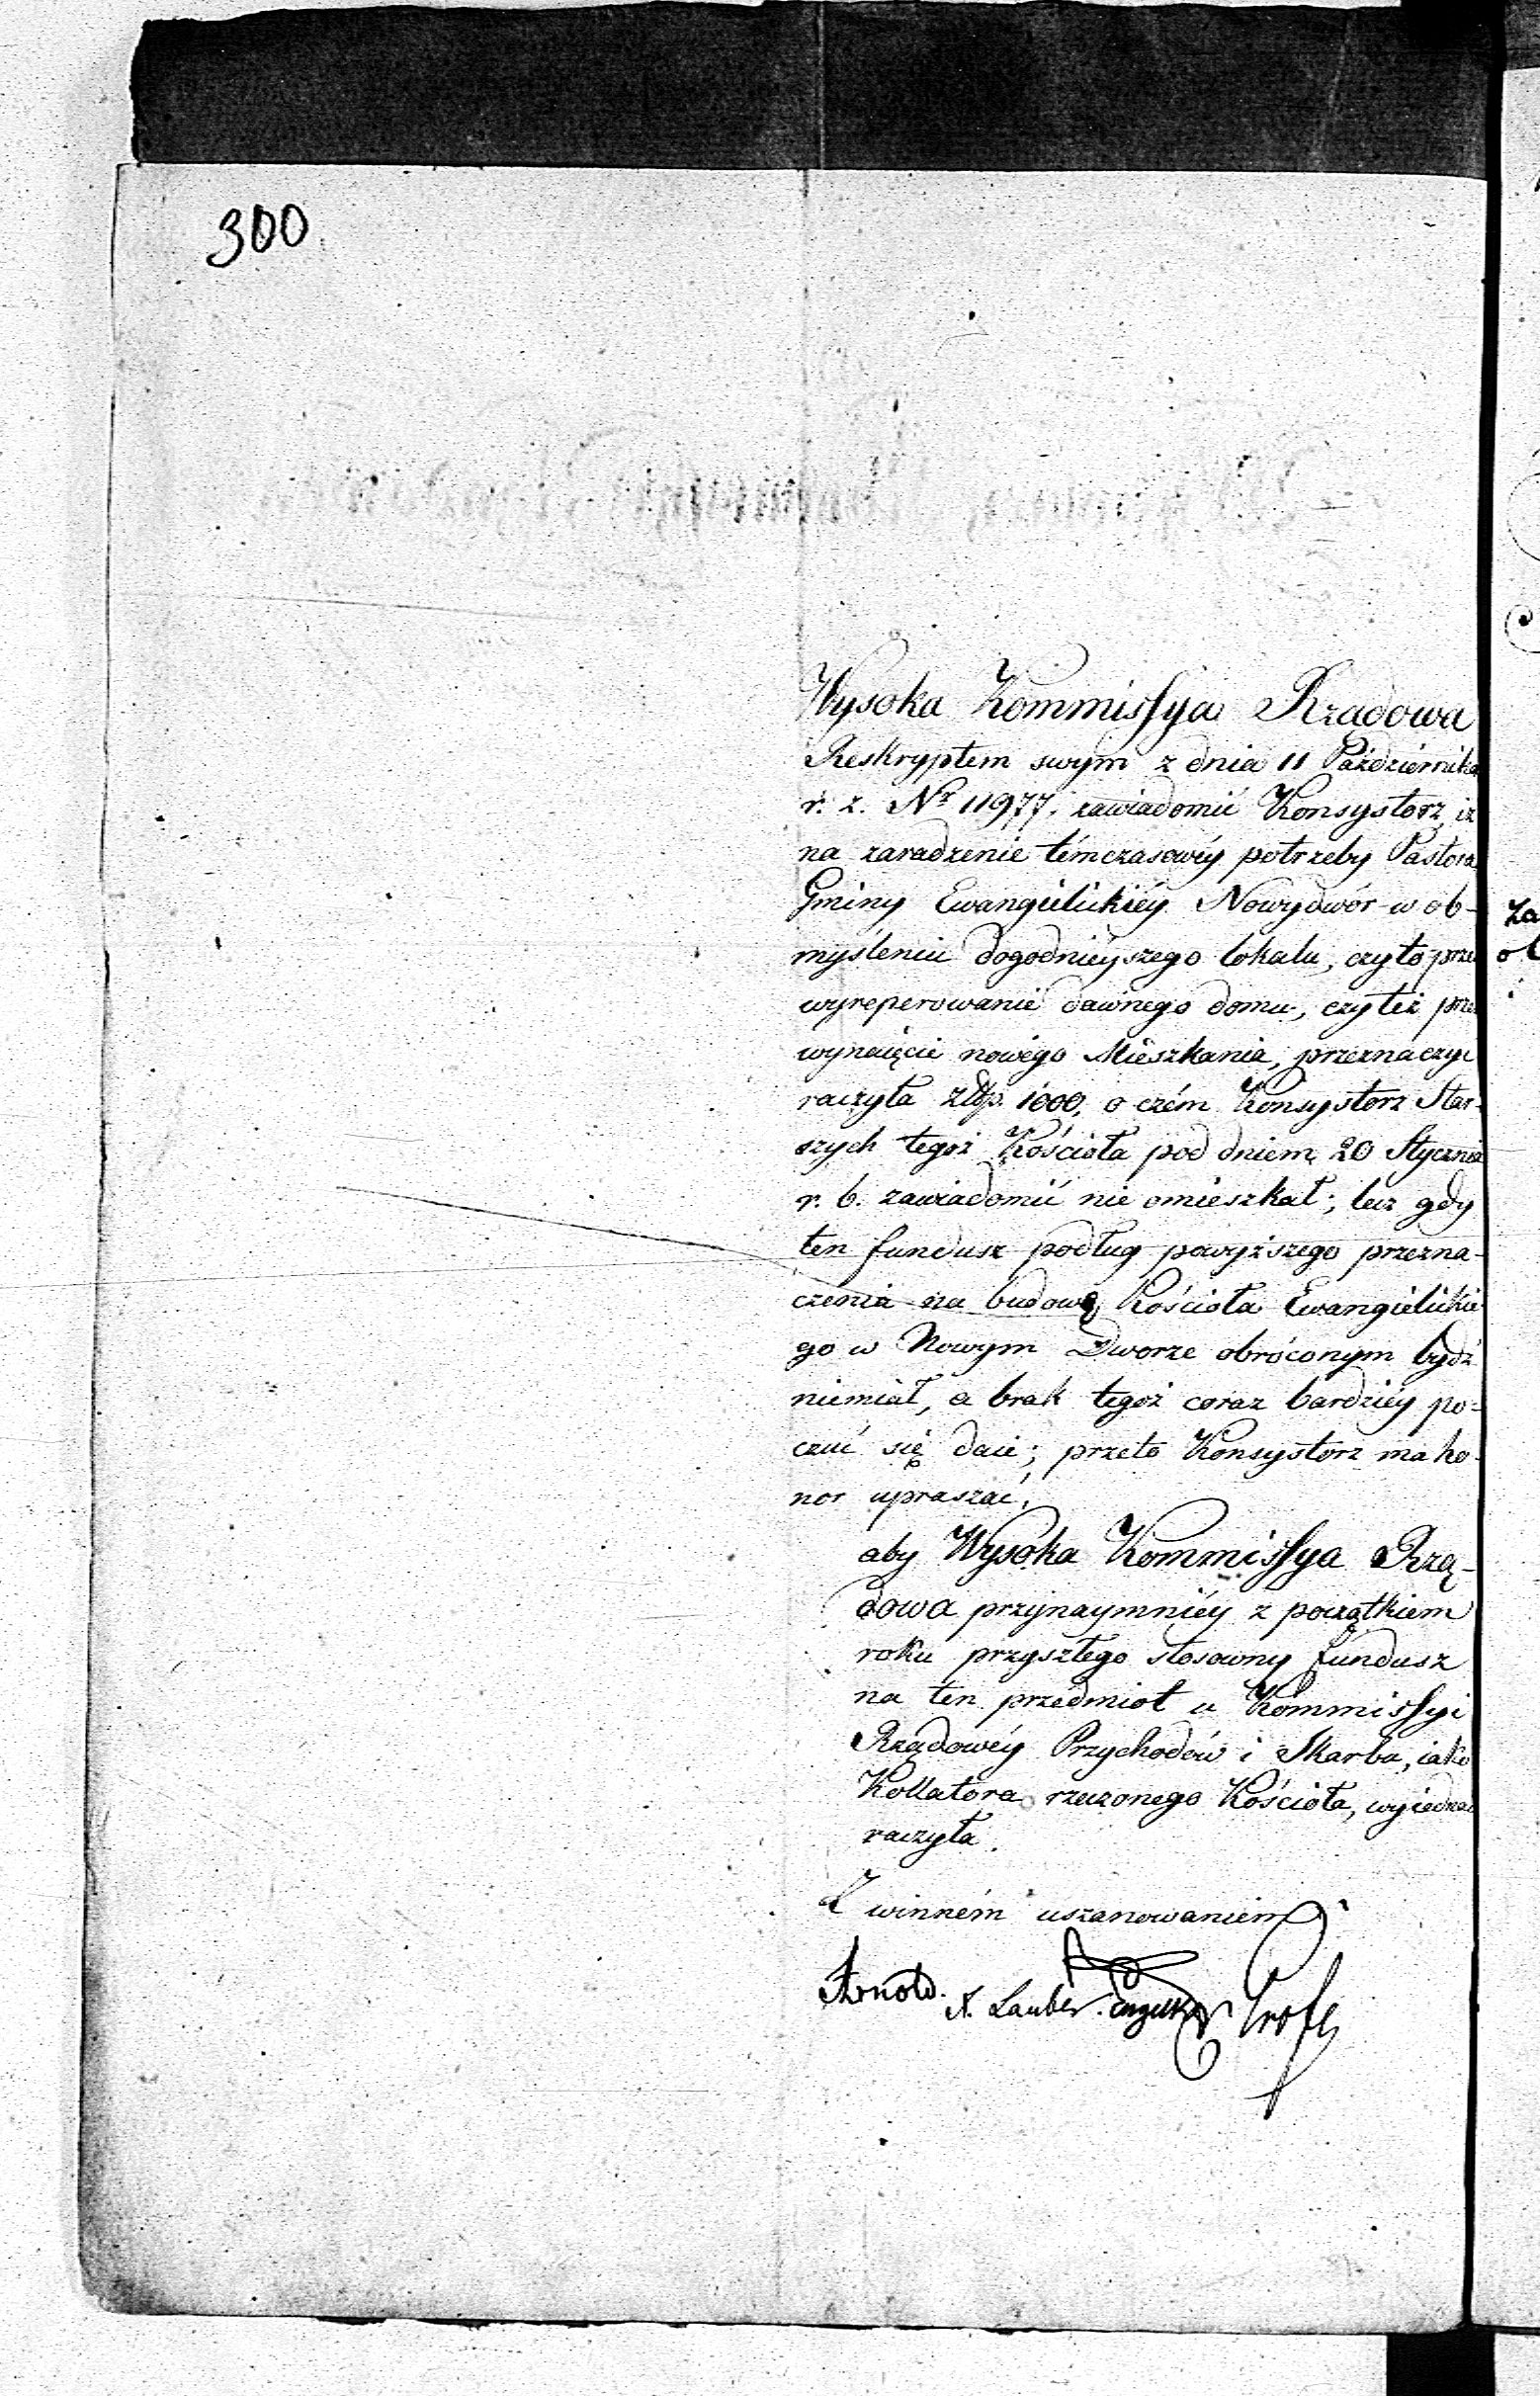 300
Wysoka Kommissya Rządowa
Reskryptem swym z dnia 11 Październikа
r. z. Nr 11977. zawiadomić Konsystorz, iż
na zaradzenie témczasowéy potrzeby Pastora
Gminy Ewangielickiéy Nowydwór w ob-
myśleniu dogodnieyszego lokalu, czyto prze
wyreperowanie dawnego domu, czyteż prze
wynaięcie nowégo Mieszkania, przeznaczyć
raczyła Złp. 1000, o czém Konsystorz Star-
szych tegoż Kościoła pod dniem 20 Stycznia
r. b. zawiadomić nie omieszkał; lecz gdy
ten fundusz podług powyższego przezna-
czenia na budowę Kościoła Ewangielickie-
go w Nowym Dworze obróconym bydź
niemiał, a brak tegoż coraz bardziéy po-
czuć się daie; przeto Konsystorz ma ho-
nor upraszać,
aby Wysoka Kommissya Rzą-
dowa przynaymniéy z początkiem
roku przyszłego stosowny fundusz
na ten przedmiot u Kommissyi
Rządowéy Przychodów i Skarbu, iako
Kollatora rzeczonego Kościoła, wyiednać
raczyła.
Z winném uszanowaniem
Arnold. K. Lauber.